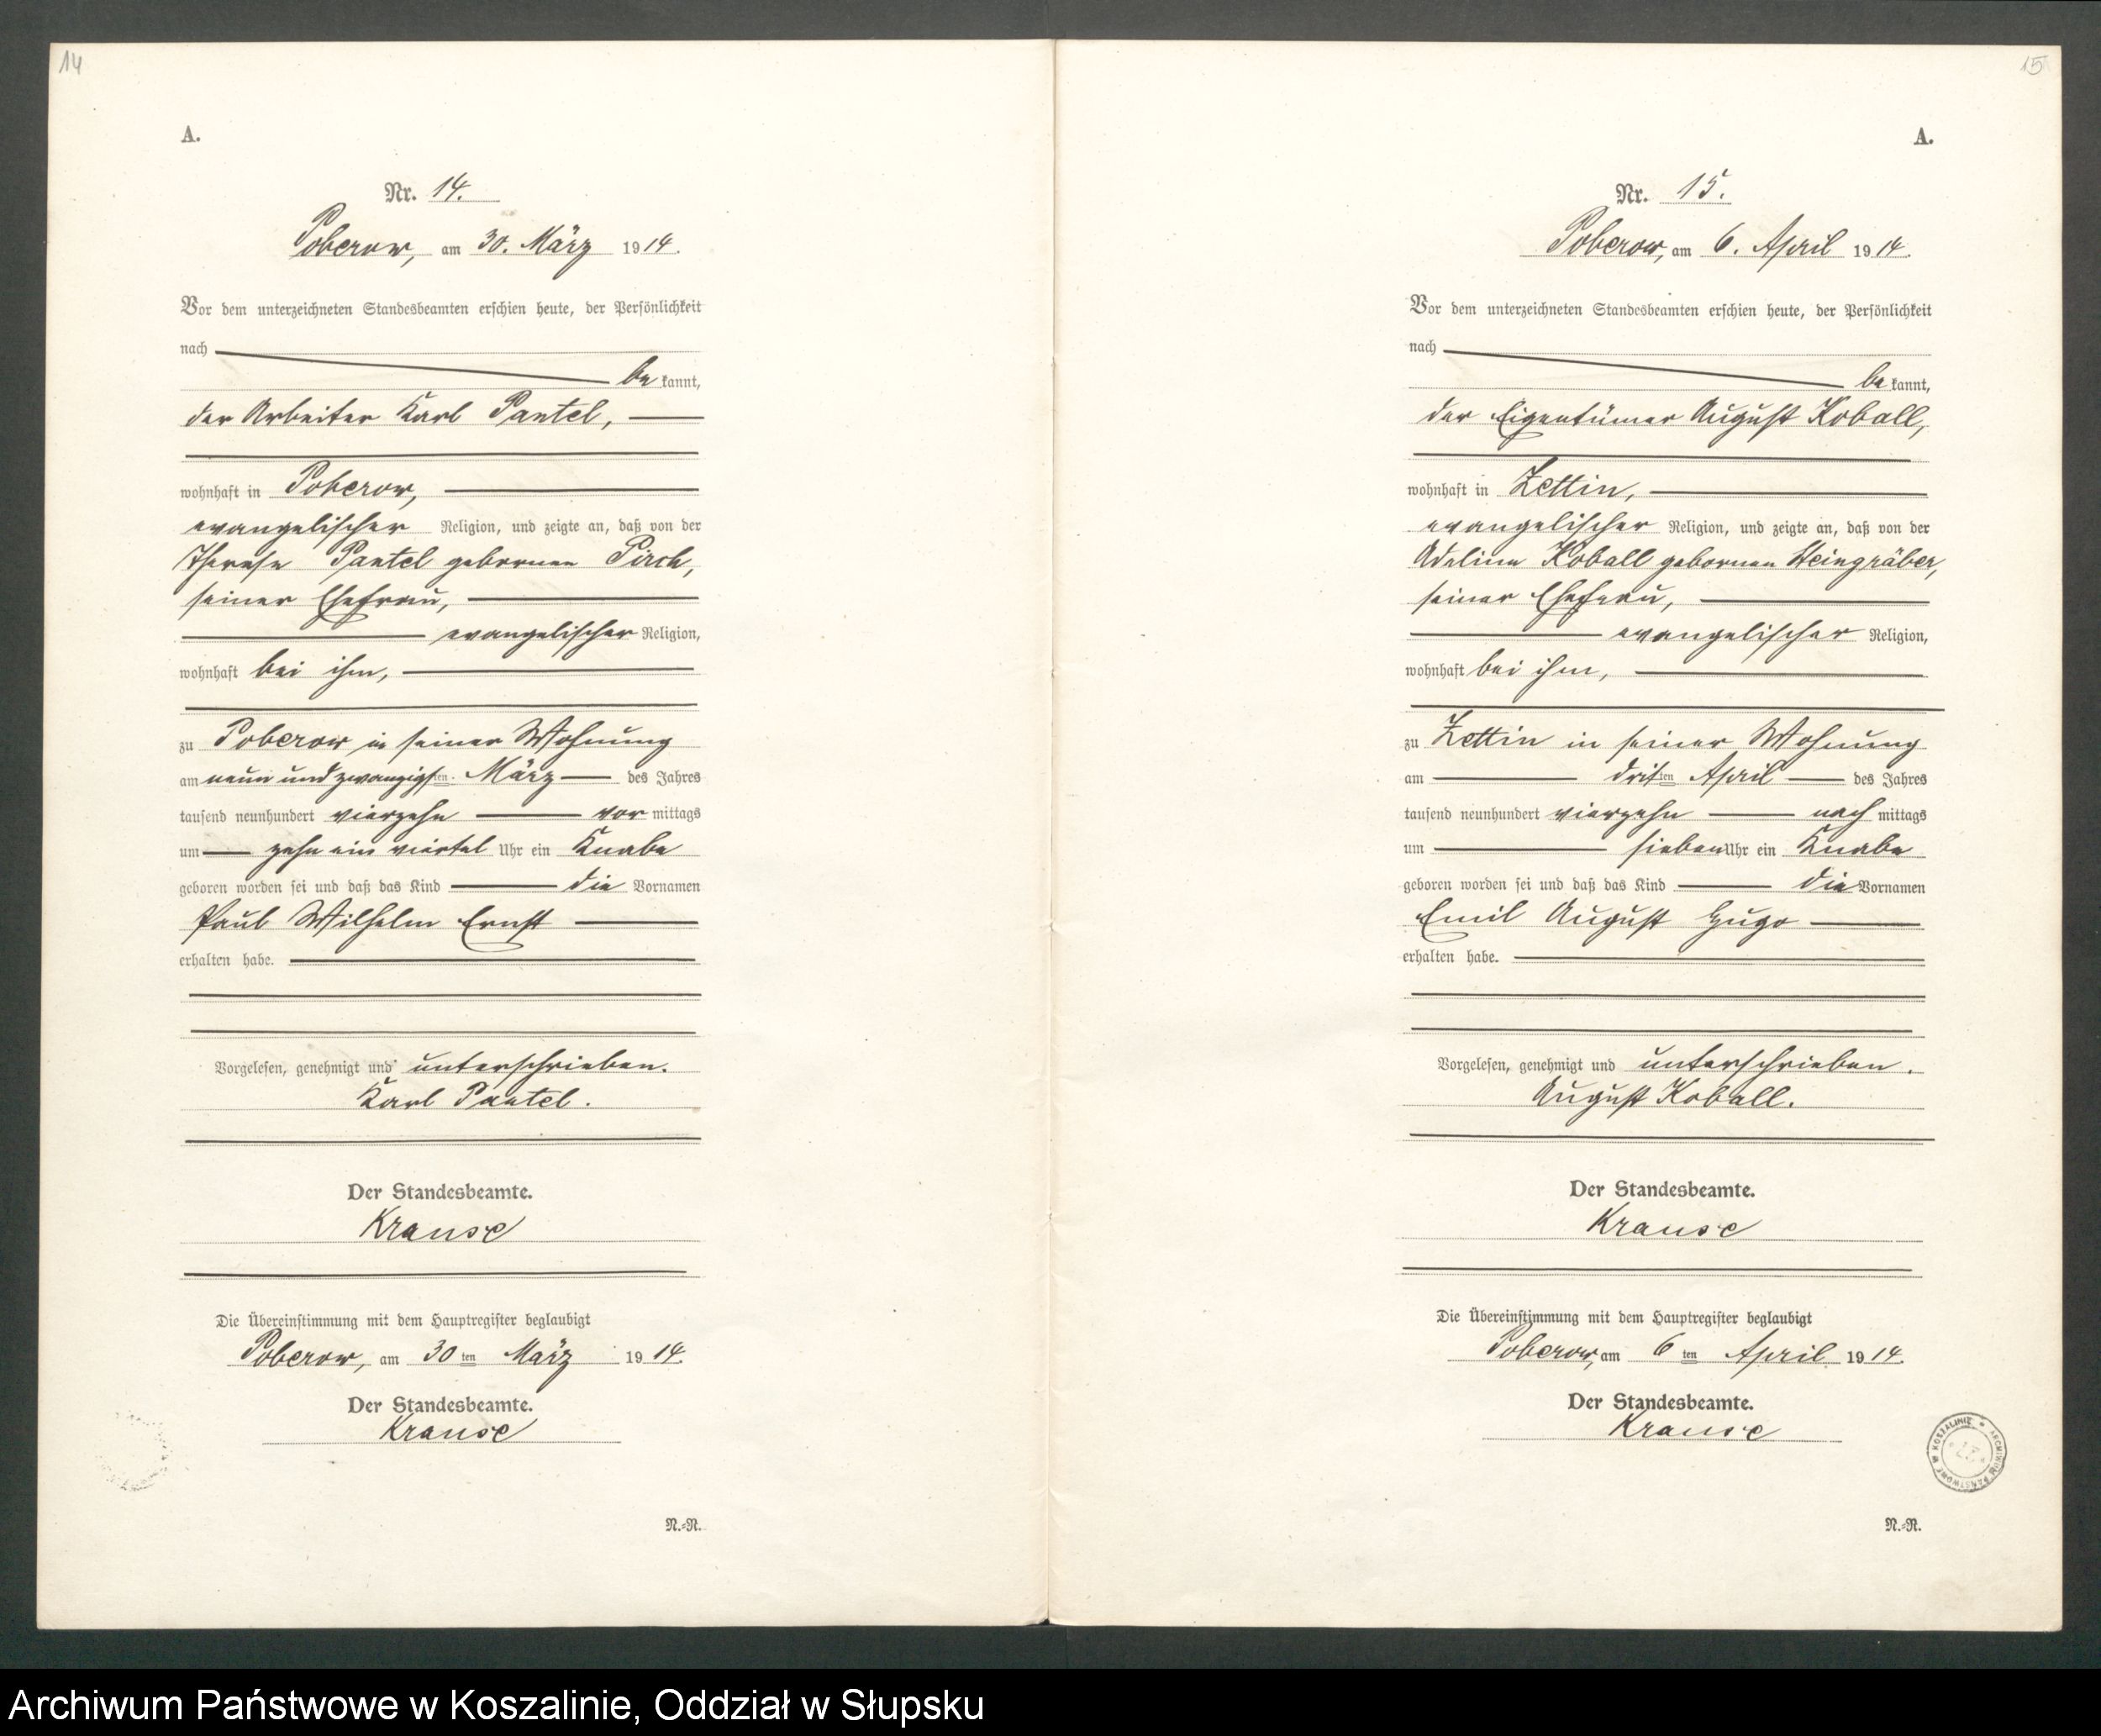 14
A.
Nr. 14.
Poberow, am 30. März 1914.
Vor dem unterzeichneten Standesbeamten erschien heute, der Persönlichkeit
nach
be kannt,
der Arbeiter Karl Pantel,
wohnhaft in Poberow,
evangelischer Religion, und zeigte an, daß von der
Therese Pantel gebornen Pirch,
seiner Ehefrau,
evangelischer Religion,
wohnhaft bei ihm,
zu Poberow in seiner Wohnung
am neun und zwanzigsten März des Jahres
tausend neunhundert vierzehn vor mittags
um zehn ein viertel Uhr ein Knabe
geboren worden sei und daß das Kind die Vornamen
Paul Wilhelm Ernst
erhalten habe.
Vorgelesen, genehmigt und unterschrieben.
Karl Pantel.
Der Standesbeamte.
Krause
Die Übereinstimmung mit dem Hauptregister beglaubigt
Poberow, am 30 ten März 1914.
Der Standesbeamte.
Krause
N.-R.
15
A.
Nr. 15.
Poberow, am 6. April 1914.
Vor dem unterzeichneten Standesbeamten erschien heute, der Persönlichkeit
nach
be kannt,
der Eigentümer August Koball,
wohnhaft in Zettin,
evangelischer Religion, und zeigte an, daß von der
Adeline Koball gebornen Steingräber,
seiner Ehefrau,
evangelischer Religion,
wohnhaft bei ihm,
zu Zettin in seiner Wohnung
am dritten April des Jahres
tausend neunhundert vierzehn nach mittags
um sieben Uhr ein Knabe
geboren worden sei und daß das Kind die Vornamen
Emil August Hugo
erhalten habe.
Vorgelesen, genehmigt und unterschrieben.
August Koball.
Der Standesbeamte.
Krause
Die Übereinstimmung mit dem Hauptregister beglaubigt
Poberow, am 6 ten April 1914.
Der Standesbeamte.
Krause
ARCHIWUM PAŃSTWOWE W KOSZALINIE
N.-R.
Archiwum Państwowe w Koszalinie, Oddział w Słupsku